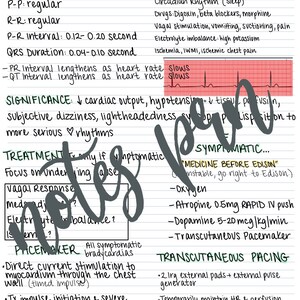 P-P: regular
R-R: regular
P-R interval: 0.12-0.20 second
QRS Duration: 0.04-0.10 second
- PR interval lengthens as heart rate slows
- QT interval lengthens as heart rate slows
Circadian Rhythm (sleep)
Drugs Digoxin, beta blockers, morphine
Vagal stimulation, vomiting, suctioning, pain
Electrolyte imbalance high potassium
Ischemia, ischemic chest pain
SIGNIFICANCE: ↓ cardiac output, hypotension, ↓ tissue perfusion,
subjective dizziness, lightheadedness, syncope, predisposition to
more serious ♡ rhythms
TREATMENT: only if symptomatic
Focus on underlying cause
Vagal Response
Electrolyte Imbalance?
Ischemia?
PACEMAKER All symptomatic bradycardias
• Direct current stimulation to
myocardium through the chest
wall (timed impulse)
SYMPTOMATIC...
"MEDICINE BEFORE EDISON"
(unstable, go right to Edison)
- Oxygen
- Atropine, 0.5mg RAPID IV push
- Dopamine 5-20 mcg/kg/min
- Transcutaneous Pacemaker
TRANSCUTANEOUS PACING
- 2 lrg external pads + external pulse
generator
notes